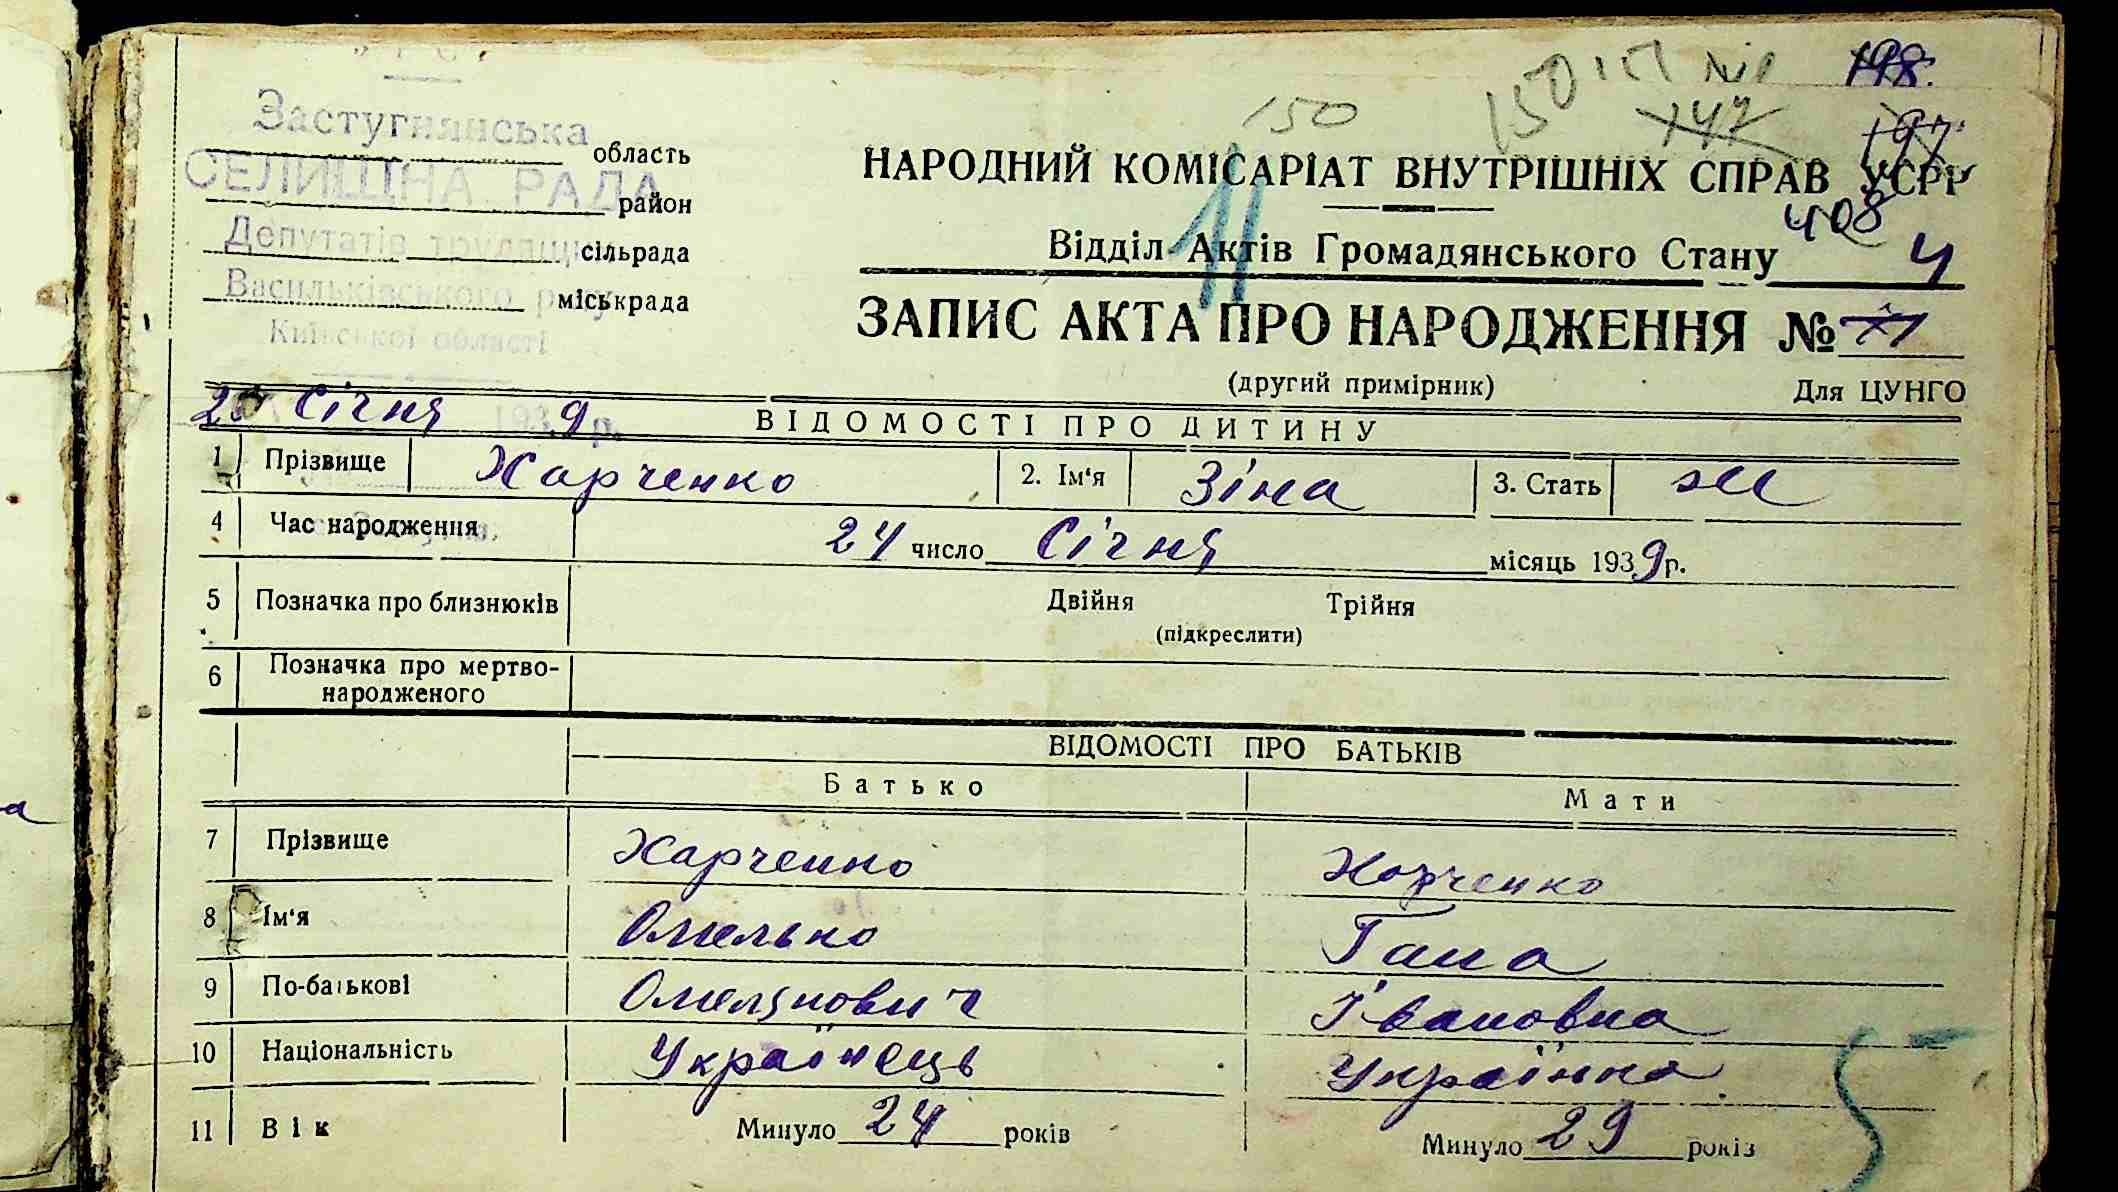 УРСР
150 151 198.
150 147 197
Застугнянська область
СЕЛИЩНА РАДА район
Депутатів трудящ сільрада
Васильківського р-ну міськрада
Київської області
НАРОДНИЙ КОМІСАРІАТ ВНУТРІШНІХ СПРАВ УСРР
408
Відділ Актів Громадянського Стану 4
11
ЗАПИС АКТА ПРО НАРОДЖЕННЯ №
(другий примірник) Для ЦУНГО
Січня 1939 р.
ВІДОМОСТІ ПРО ДИТИНУ
1 Прізвище Харченко 2. Ім‘я Зіна 3. Стать ж
4 Час народження 24 число Січня місяць 1939 р.
5 Позначка про близнюків Двійня Трійня
(підкреслити)
6 Позначка про мертво-
народженого
ВІДОМОСТІ ПРО БАТЬКІВ
Батько Мати
7 Прізвище Харченко Харченко
8 Ім‘я Омелько Гана
9 По-батькові Омелянович Івановна
10 Національність Українець Українка
11 Вік Минуло 24 років Минуло 29 років
5